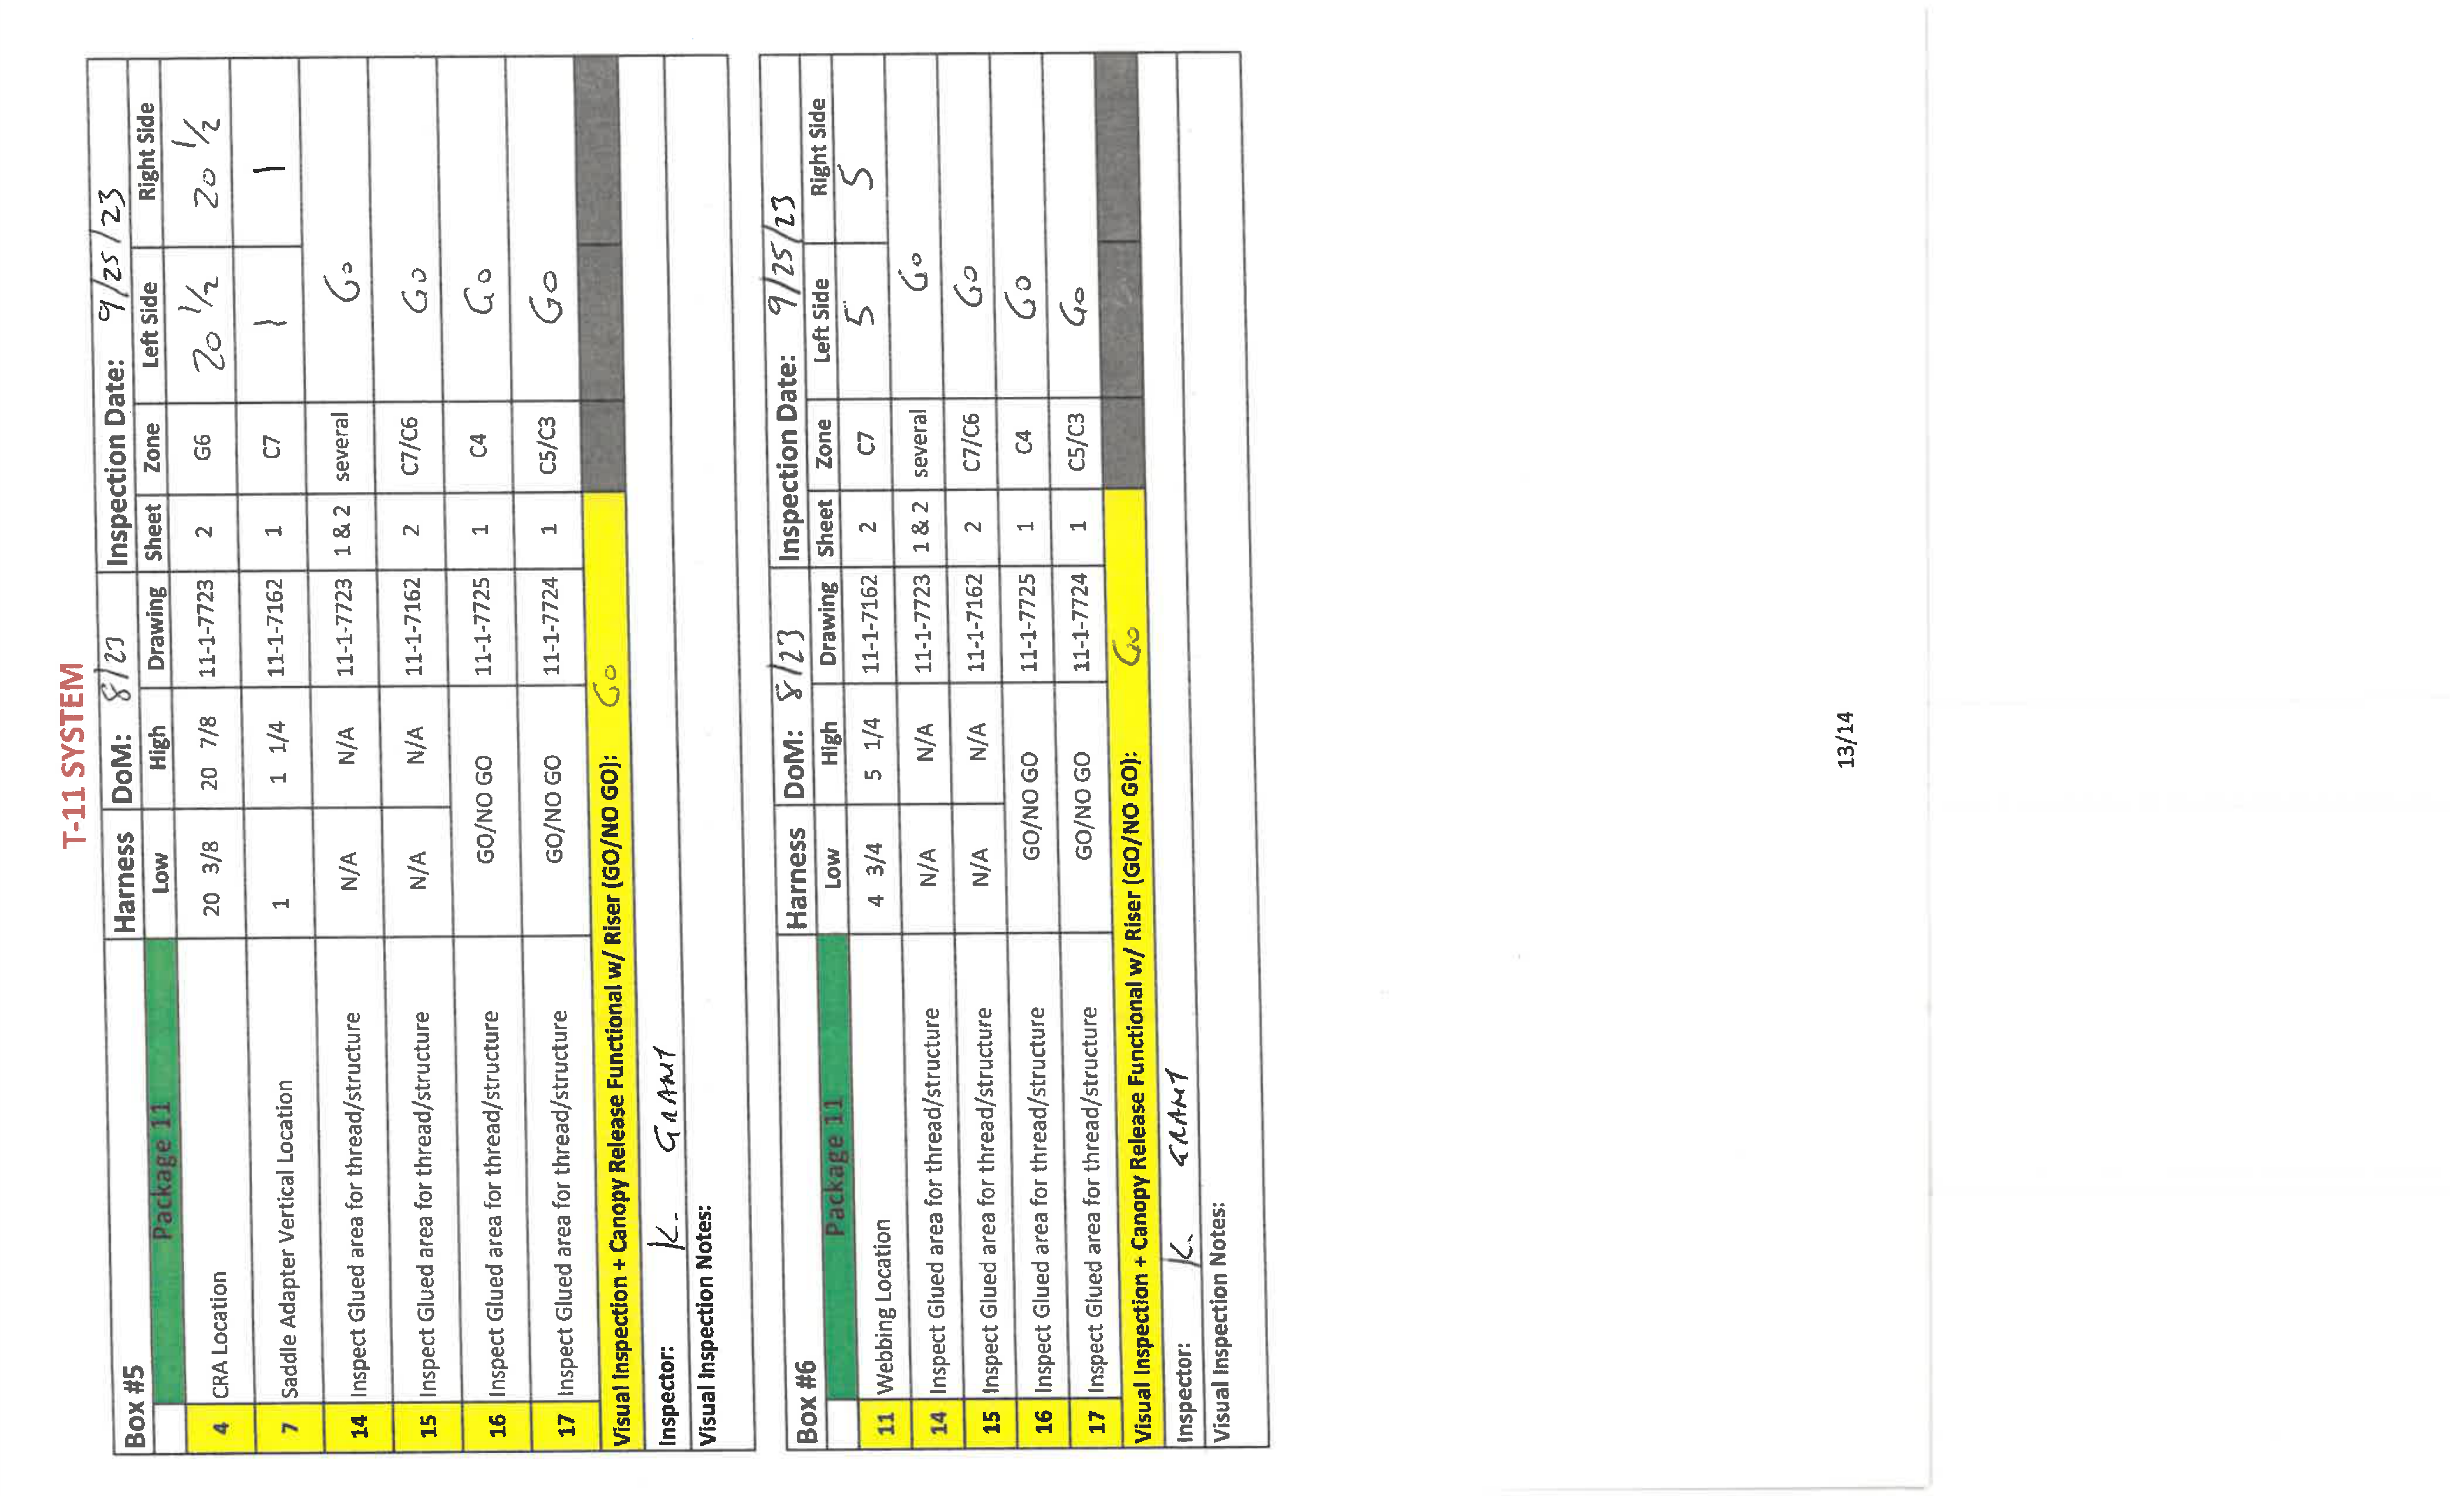 T-11 SYSTEM
Box #5 Harness DoM: 8/23 Inspection Date: 9/25/23
Package 11 Low High Drawing Sheet Zone Left Side Right Side
4 CRA Location 20 3/8 20 7/8 11-1-7723 2 G6 20 1/2 20 1/2
7 Saddle Adapter Vertical Location 1 1 1/4 11-1-7162 1 C7 1 1
14 Inspect Glued area for thread/structure N/A N/A 11-1-7723 1 & 2 several Go
15 Inspect Glued area for thread/structure N/A N/A 11-1-7162 2 C7/C6 Go
16 Inspect Glued area for thread/structure GO/NO GO 11-1-7725 1 C4 Go
17 Inspect Glued area for thread/structure GO/NO GO 11-1-7724 1 C5/C3 Go
Visual Inspection + Canopy Release Functional w/ Riser (GO/NO GO): Go
Inspector: K. GRANT
Visual Inspection Notes:
Box #6 Harness DoM: 8/23 Inspection Date: 9/25/23
Package 11 Low High Drawing Sheet Zone Left Side Right Side
11 Webbing Location 4 3/4 5 1/4 11-1-7162 2 C7 5 5
14 Inspect Glued area for thread/structure N/A N/A 11-1-7723 1 & 2 several Go
15 Inspect Glued area for thread/structure N/A N/A 11-1-7162 2 C7/C6 Go
16 Inspect Glued area for thread/structure GO/NO GO 11-1-7725 1 C4 Go
17 Inspect Glued area for thread/structure GO/NO GO 11-1-7724 1 C5/C3 Go
Visual Inspection + Canopy Release Functional w/ Riser (GO/NO GO): Go
Inspector: K. GRANT
Visual Inspection Notes:
13/14